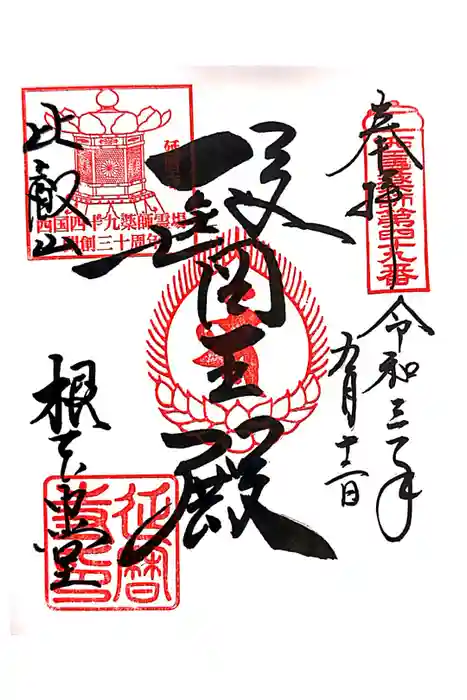 奉拝
西国薬師第四十九番
令和三年
九月十二日
醫王殿
比叡山
西国四十九薬師霊場
開創三十周年
根本中堂
延暦
寺印